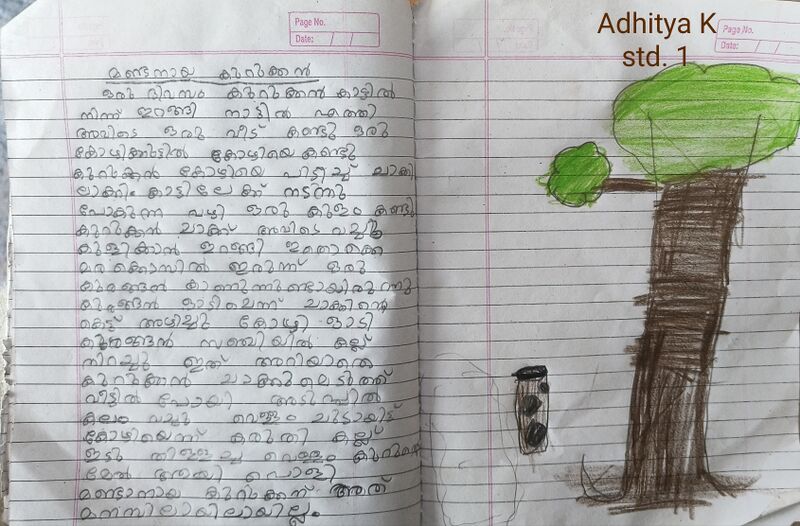 Page No.
Date: / /
Adhitya K
std. 1
Page No.
Date: / /
മണ്ടനായ കുറുക്കൻ
ഒരു ദിവസം കുറുക്കൻ കാട്ടിൽ
നിന്ന് ഇറങ്ങി നാട്ടിൽ എത്തി
അവിടെ ഒരു വീട് കണ്ടു ഒരു
കോഴിക്കൂട്ടിൽ കോഴിയെ കണ്ടു
കുറുക്കൻ കോഴിയെ പിടിച്ച് ചാക്കി
ലാക്കി കാട്ടിലേക്ക് നടന്നു
പോകുന്ന വഴി ഒരു കുളം കണ്ടു
കുറുക്കൻ ചാക്ക് അവിടെ വച്ചു
കുളിക്കാൻ ഇറങ്ങി ഇതൊക്കെ
മരക്കൊമ്പിൽ ഇരുന്ന് ഒരു
കുരങ്ങൻ കാണുന്നുണ്ടായിരുന്നു
കുരങ്ങൻ ഓടിചെന്ന് ചാക്കിന്റെ
കെട്ട് അഴിച്ചു കോഴി ഓടി
കുരങ്ങൻ സഞ്ചിയിൽ കല്ല്
നിറച്ചു ഇത് അറിയാതെ
കുറുക്കൻ ചാക്കുമെടുത്ത്
വീട്ടിൽ പോയി അടുപ്പിൽ
കലം വച്ചു വെള്ളം ചൂടായിട്ട്
കോഴിയെന്ന് കരുതി കല്ല്
ഇട്ടു തിളച്ച വെള്ളം
മേൽ ആയി പൊളി
മണ്ടാനായ കുറുക്കന് അത്
മനസിലായിലായില്ല.